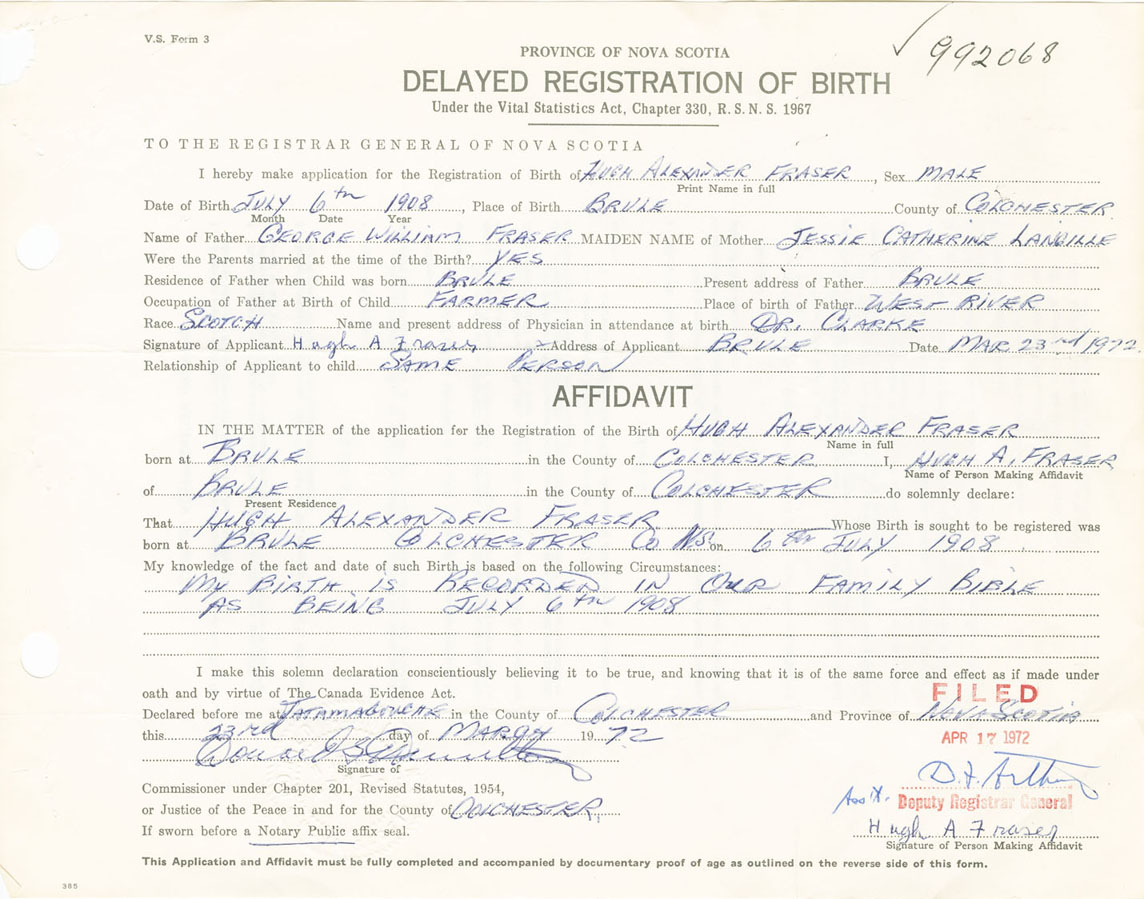 V.S. Form 3
992068
PROVINCE OF NOVA SCOTIA
DELAYED REGISTRATION OF BIRTH
Under the Vital Statistics Act, Chapter 330, R.S.N.S. 1967
TO THE REGISTRAR GENERAL OF NOVA SCOTIA
I hereby make application for the Registration of Birth of HUGH ALEXANDER FRASER, Sex MALE
Print Name in full
Date of Birth JULY 6th 1908, Place of Birth BRULE County of COLCHESTER
Month Date Year
Name of Father GEORGE WILLIAM FRASER MAIDEN NAME of Mother JESSIE CATHERINE LANGILLE
Were the Parents married at the time of the Birth? YES
Residence of Father when Child was born BRULE Present address of Father BRULE
Occupation of Father at Birth of Child FARMER Place of birth of Father WEST RIVER
Race SCOTCH Name and present address of Physician in attendance at birth DR. CLARKE
Signature of Applicant Hugh A Fraser Address of Applicant BRULE Date MAR 23rd 1972
Relationship of Applicant to child SAME PERSON
AFFIDAVIT
IN THE MATTER of the application for the Registration of the Birth of HUGH ALEXANDER FRASER
Name in full
born at BRULE in the County of COLCHESTER I, HUGH A. FRASER
Name of Person Making Affidavit
of BRULE in the County of COLCHESTER do solemnly declare:
Present Residence
That HUGH ALEXANDER FRASER Whose Birth is sought to be registered was
born at BRULE COLCHESTER Co N.S. on 6th JULY 1908
My knowledge of the fact and date of such Birth is based on the following Circumstances:
MY BIRTH IS RECORDED IN OUR FAMILY BIBLE
AS BEING JULY 6th 1908
I make this solemn declaration conscientiously believing it to be true, and knowing that it is of the same force and effect as if made under
oath and by virtue of The Canada Evidence Act.
FILED
Declared before me at TATAMAGOUCHE in the County of COLCHESTER and Province of NOVA SCOTIA
this 23rd day of MARCH 1972
APR 17 1972
Signature of
Commissioner under Chapter 201, Revised Statutes, 1954,
or Justice of the Peace in and for the County of COLCHESTER,
Ass't. Deputy Registrar General
If sworn before a Notary Public affix seal.
Hugh A Fraser
Signature of Person Making Affidavit
This Application and Affidavit must be fully completed and accompanied by documentary proof of age as outlined on the reverse side of this form.
385